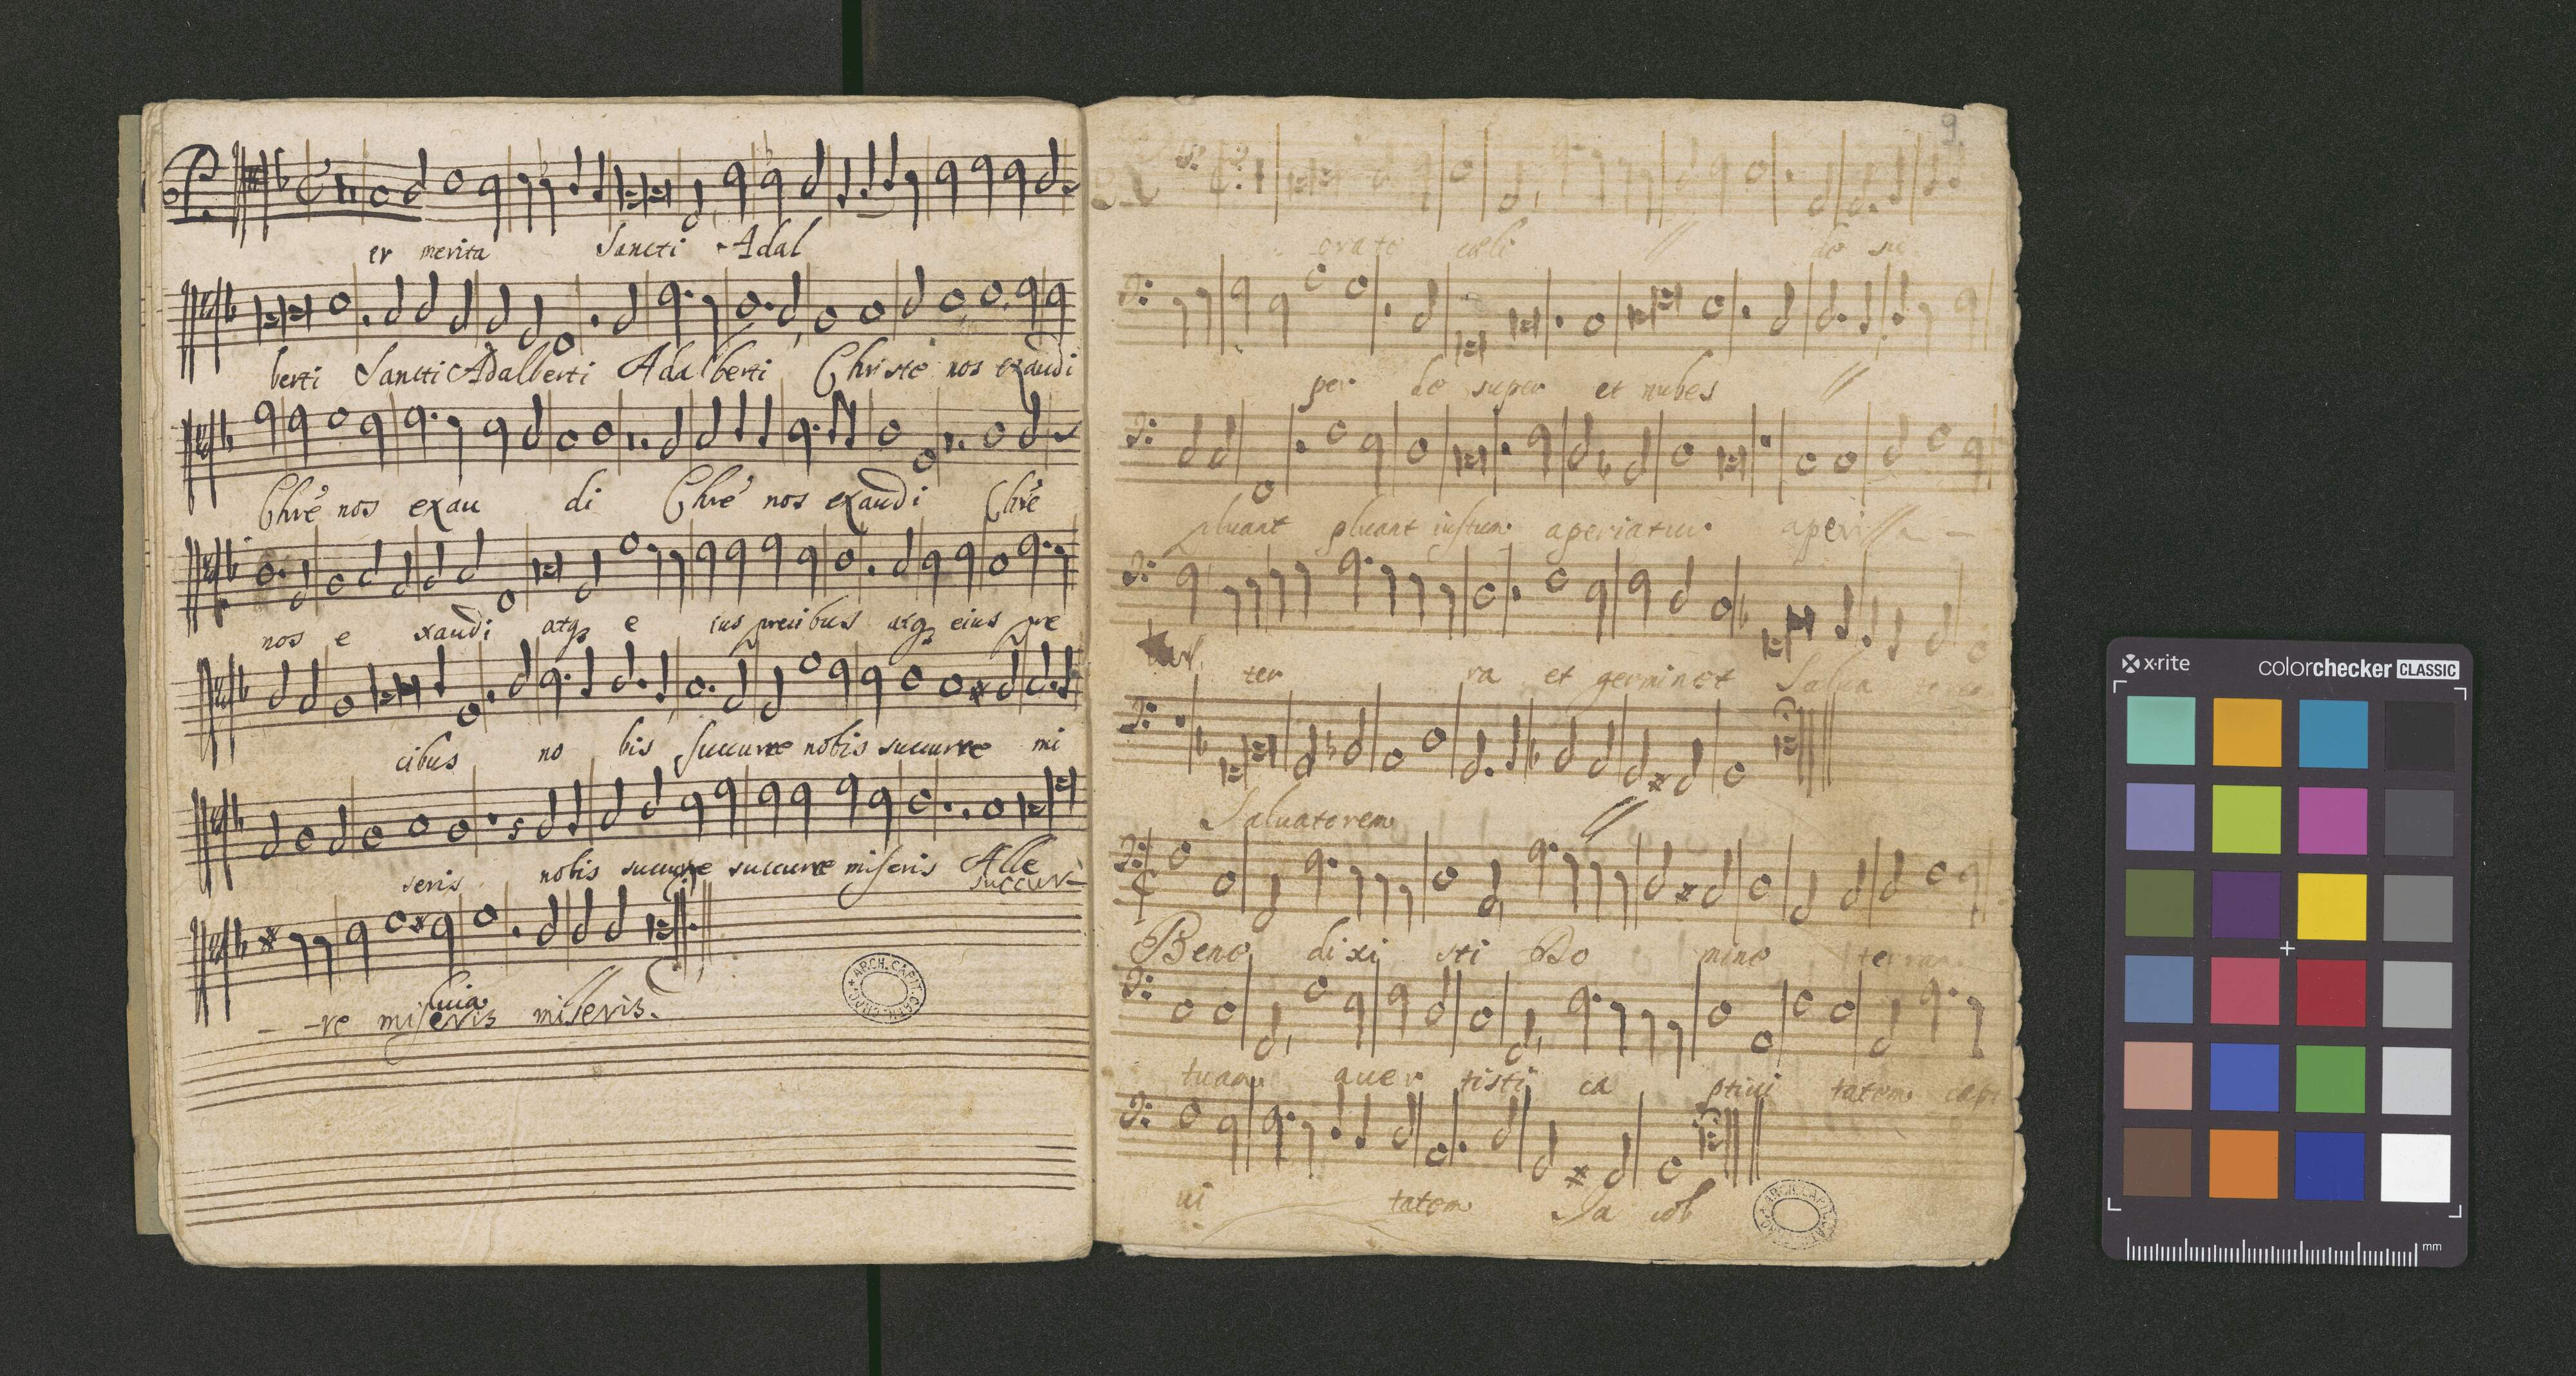 Per merita Sancti Adal
berti Sancti Adalberti Adalberti Christe nos exaudi
Chrē nos exau di Chrē nos exaudi Chrē
nos e xaudi atqȝ e ius precibus atqȝ eius pre
cibus no bis succurre nobis succurre mi
seris nobis succurre succurre miseris Alle
succur-
luia
- -re miseris miseris.
ARCH. CAPIT.
9
Rorate cœli // de su
per de super et nubes //
pluant pluant iustum aperiatur aperi // -
ter ra et germinet Salua
Saluatorem //
Bene dixi sti Do mine terram
tuam auer tisti ca ptiui tatem capti
ui tatem Ja cob
ARCH. CAPIT.
x-rite
colorchecker CLASSIC
mm